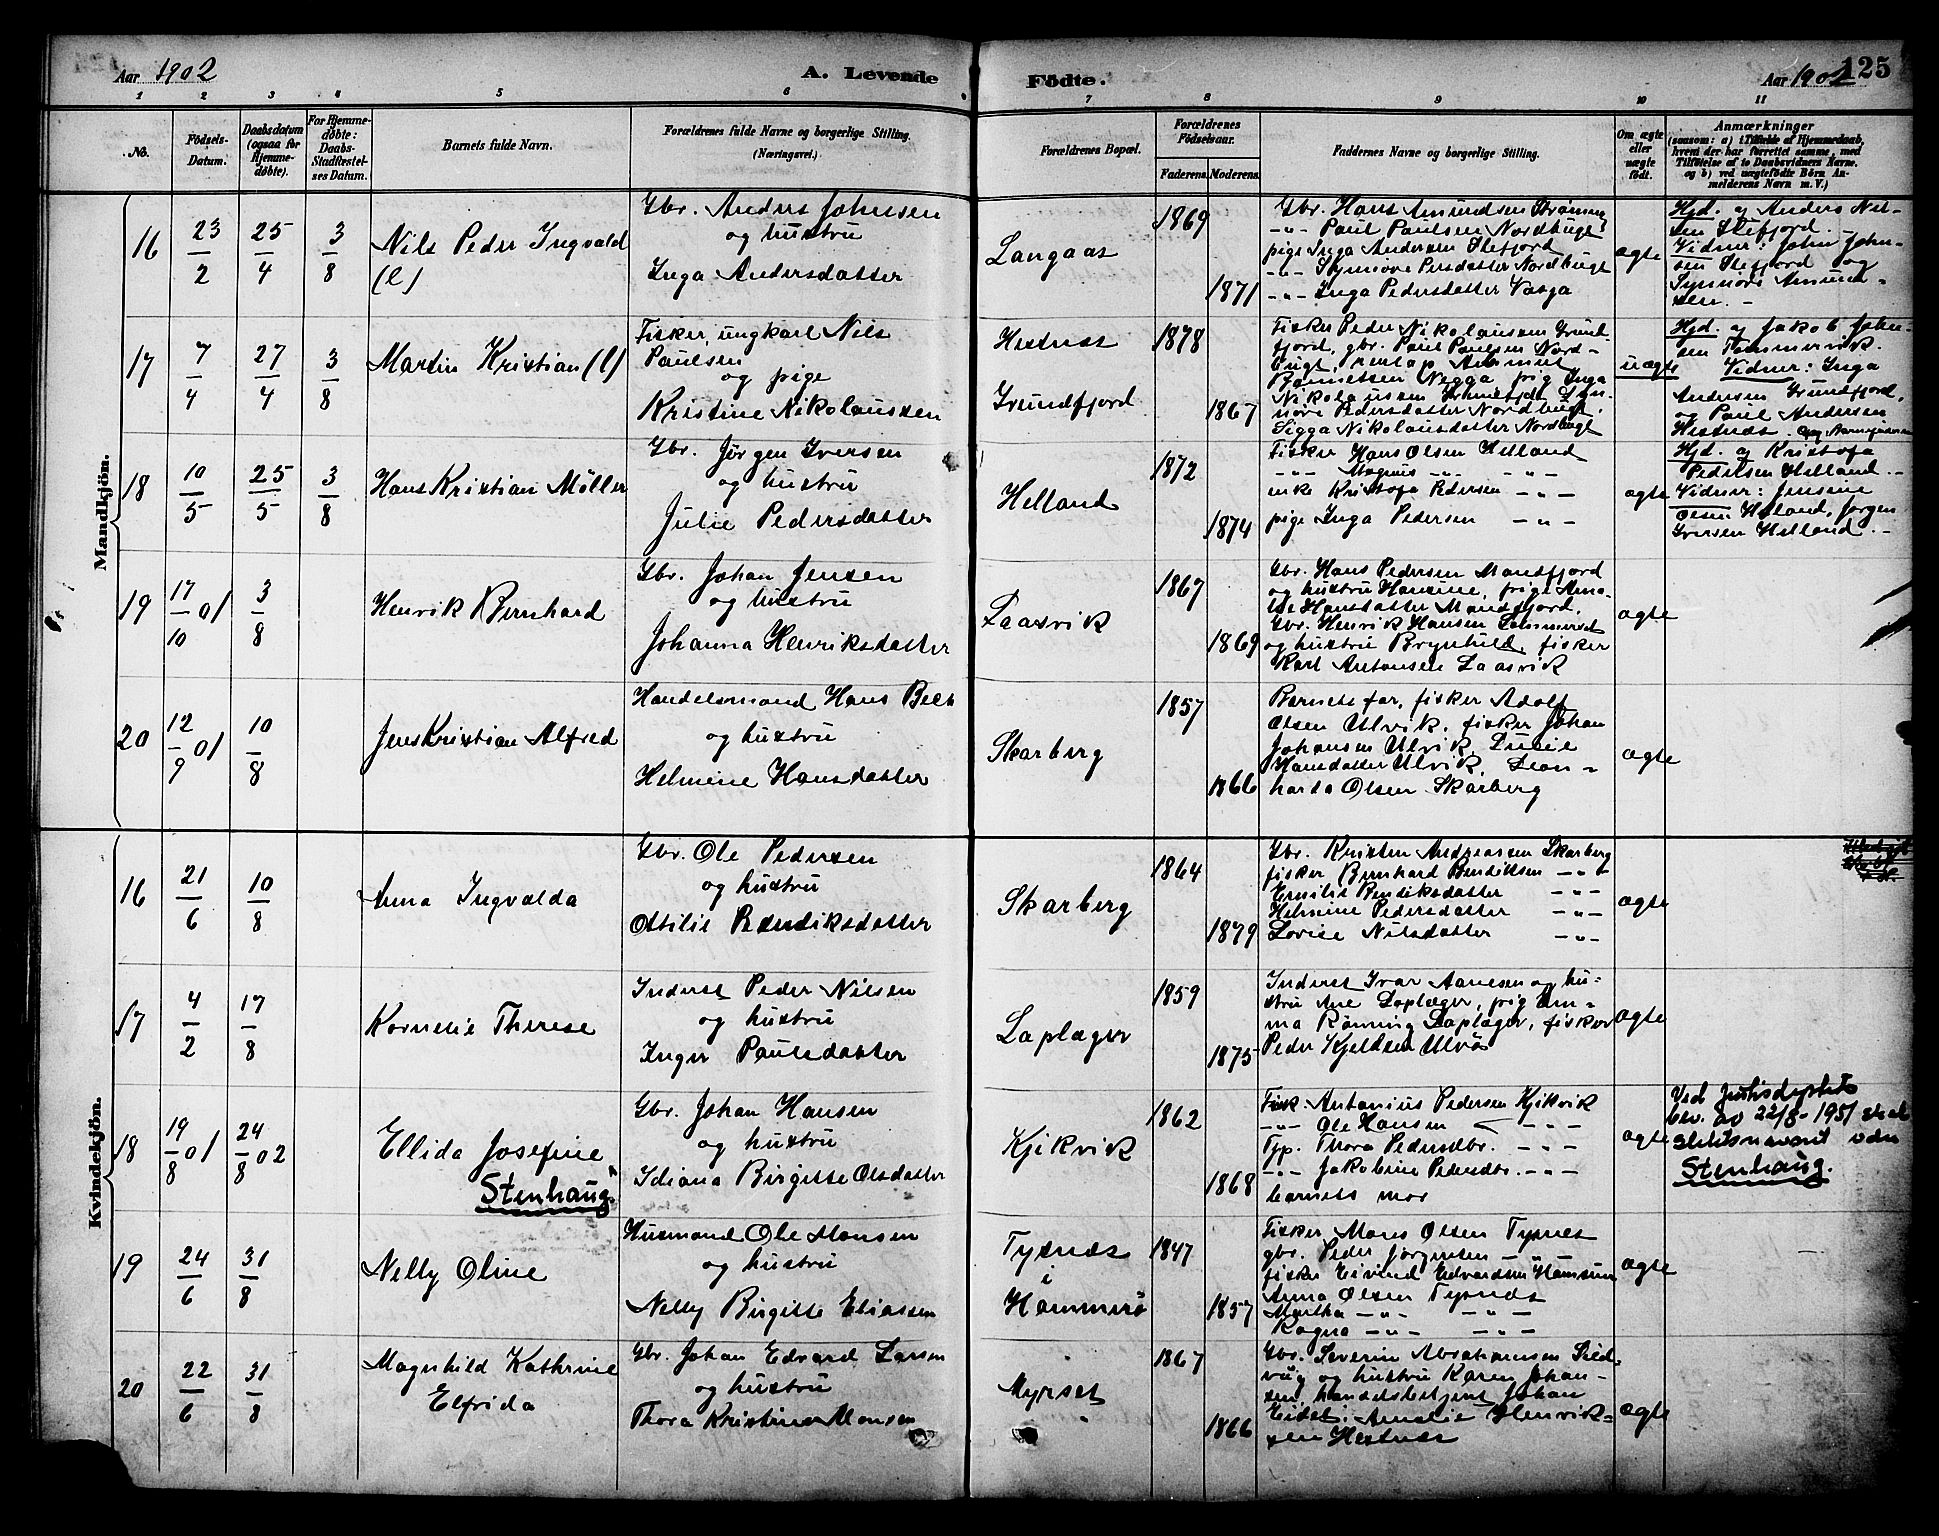 Aar 1902
A. Levende
Födte.
Aar 1902
125
1 2 3 4 5 6 6 7 8 9 10 11
No.
Födsels-
Datum.
Daabsdatum
(ogsaa for
Hjemme-
døbte).
For Hjemme-
døbte:
Daabs-
Stadfæstel-
ses Datum.
Barnets fulde Navn.
Forældrenes fulde Navne og borgerlige Stilling.
(Næringsvei.)
Forældrenes Bopæl.
Forældrenes
Födselsaar.
Faderens. Moderens.
Faddernes Navne og borgerlige Stilling.
Om ægte
eller
uægte
födt.
Anmærkninger
(saasom: a) i Tilfælde af Hjemmedaab,
hvem der har forrettet samme, med
Tilföielse af to Daabsvidners Navne.
og b) ved uægtefödte Börn An-
melderens Navn m. V.)
Mandkjön.
16
23/2
25/4
3/8
Nils Peder Ingvald
(l)
Gbr. Anders Johnsen
og hustru
Inga Andersdatter
Langaas
1869
1871
Gbr. Hans Amundsen
-"- Paul Paulsen Nordbugt
pige Inga Andersen Stefjord
-"- Synnöve Persdatter Nordbugt
-"- Inga Pedersdatter Vasja
ægte
Hjd. og Anders Nil-
sen Stefjord. -
Vidner: John John-
sen Stefjord og
Synnöve Amund-
sen. -
17
7/4
27/4
3/8
Martin Kristian (l)
Fisker, ungkarl Nils
Paulsen
og pige
Kristine Nikolaussen
Hestnæs
Grundfjord
1878
1867
Fisker Peder Nikolaussen Grund-
fjord, gbr. Paul Paulsen Nord-
bugt,
pig Inga
Nikolaussen
Pedersdatter Nordbugt,
Sigga Nikolausdatter Nordbugt
uægte
Hjd. og Jakob John-
sen Tömmervik.
Vidner: Inga
Andersen Grundfjord,
og Paul Andersen
Hestnæs.
18
10/5
25/5
3/8
Hans Kristian Möller
Gbr. Jörgen Iversen
og hustru
Julie Pedersdatter
Helland
1872
1874
Fisker Hans Olsen Helland
-"- Magnus -"- -"-
enke Kristofa Pedersen -"-
pige Inga Pedersen -"-
ægte
Hjd. og Kristofa
Pedersen Helland. -
Vidner: Jensine
Olsen Helland, Jörgen
Iversen Helland. -
19
17/10 01
3/8
Henrik Bernhard
Gbr. Johan Jensen
og hustru
Johanna Henriksdatter
Laasvik
1867
1869
Gbr. Hans Pedersen Mandfjord
og hustru Hansine, pige Ama-
lie Hansdatter Mandfjord,
Gbr. Henrik Hansen
og hustru Brynhild, fisker
Karl Antonsen Laasvik
ægte
20
12/9 01
10/8
Jens Kristian Alfred
Handelsmand Hans Beck
og hustru
Helmine Hansdatter
Skarberg
1857
1866
Barnets far, fisker Adolf
Olsen Ulvik, fisker Johan
Johansen Ulvik, Lulie
Hansdatter Ulvik, Leon-
harda Olsen Skarberg
ægte
Kvindekjön.
16
21/6
10/8
Anna Ingvalda
Gbr. Ole Pedersen
og hustru
Otbilie Bendiksdatter
Skarberg
1864
1879
Gbr. Kristen Andreassen Skarberg
fisker Bernhard Bendiksen -"-
Emilie Bendiksdatter -"-
Helmine Pedersdatter -"-
Lovise Nilsdatter -"-
ægte
17
4/2
17/8
Kornelie Therese
Inderst Peder Nilsen
og hustru
Inger Paulsdatter
Laplæger
1859
1875
Inderst Ivar Aanesen og hu-
stru Ane Laplæger, pig Em-
ma Rönning Laplæger, fisker
Peder Kjeldsen Ulvös
ægte
18
19/8 01
24/8 02
Ellida Josefine
Stenhaug
Gbr. Johan Hansen
og hustru
Idiana Birgitte Olsdatter
Kjikvik
1862
1868
Fisk. Antonius Pedersen Kjikvik
-"- Ole Hansen -"-
Typ. Thora Pedersdtr. -"-
-"- Jakobine Pedersdtr. -"-
barnets mor
ægte
Ved Justisdeptets
bev. av 22/8-1951 skal
slektsnavnet være
Stenhaug.
19
24/6
31/8
Nelly Oline
Husmand Ole Monsen
og hustru
Nelly Birgitte Eliassen
Tysnæs
i
Hammerö
1847
1857
Fisker Mons Olsen Tysnes
gbr. Peder Jörgensen -"-
fisker Eivind Edvardsen Hamsund
Anna Olsen Tysnes
Martha -"- -"-
Ragna -"- -"-
ægte
20
22/6
31/8
Magnhild Kathrine
Elfrida
Gbr. Johan Edvard Larsen
og hustru
Thora Kristine Monsen
Myrset
1867
1866
Gbr. Severin Abrahamsen Sild-
vug og hustru Karen Johan-
sen, handelsbetjent Johan
Eidet, Amalie Henrik-
sen Hestnæs
ægte